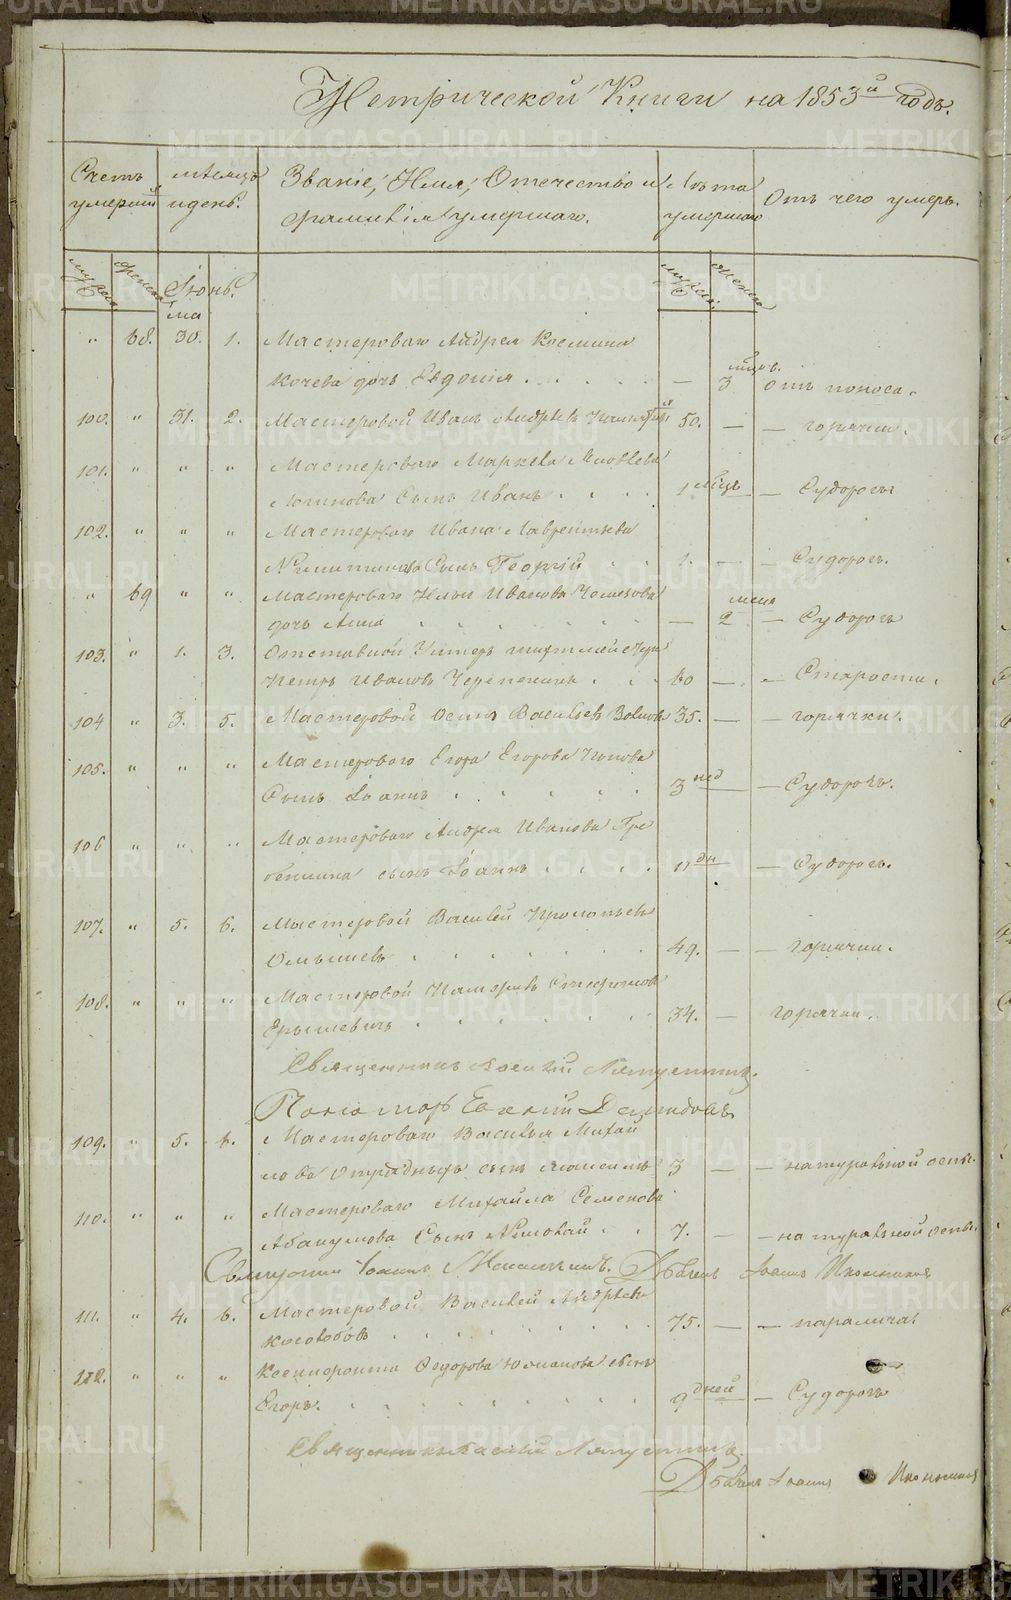 Метрической Книги на 1853й годъ.
Счетъ умершихъ
мѣсяцъ и день.
Званіе, Имя, Отечество и фамилія умершаго.
Лѣта умершаго
Отъ чего умеръ.
мужеска женска Іюнь. мужеска женска
ма
„ 68. 30. 1. Мастероваго Андрея Космина
Кочева дочь Евдокія — 3 мѣсяц. отъ поноса.
100. „ 31. 2. Мастеровой Иванъ Андреевъ 50. — — горячки.
101. „ „ „ Мастероваго Яковлева
Логинова Сынъ Иванъ 1 мѣсц — — Судорогъ
102. „ „ „ Мастероваго Ивана Лаврентьева
Никитина Сынъ Георгій 1. — — Судорогъ.
„ 69 „ „ Мастероваго Ильи Иванова
дочь Анна — 2 меся — Судорогъ
103. „ 1. 3. Отставной Унтеръ
Петръ Ивановъ Черепанинъ 60 — — Старости.
104 „ 3. 5. Мастеровой Осипъ Васильевъ 35. — — горячки.
105. „ „ „ Мастероваго Егора Егорова Попова
Сынъ Іоаннъ 3 нед — — Судорогъ.
106 „ „ „ Мастероваго Андрея Иванова Гре
бенкина сынъ Іоаннъ 11 дн — — Судорогъ.
107. „ 5. 6. Мастеровой Василей Прокопьевъ
49. — — горячки.
108. „ „ „ Мастеровой
34. — горячки.
Священникъ Василій Ляпустинъ.
Пономарь Евгеній Демидовъ
109. „ 5. Мастероваго Василья Михай
лова Отрадныхъ сынъ 3 — — натуральной оспы.
110. „ „ „ Мастероваго Михайла Семенова
Абакумова Сынъ Николай 7. — — натуральной оспы.
Священникъ Іоаннъ Дьячекъ Іоаннъ Иконниковъ
111. „ 4. 6. Мастеровой Василей Андреевъ
Кособоковъ 75. — — паралича.
112. „ „ „ Ксенофонта Федорова сынъ
Егоръ. 9 дней — — Судорогъ
Священникъ Василій Ляпустинъ.
Дьячекъ Іоаннъ Иконниковъ
METRIKI.GASO-URAL.RU